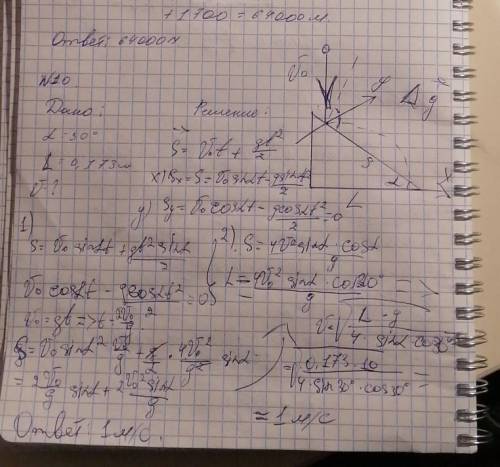 +1700 = 64000м.
Ответ: 64000м
N20.
Дано:
Решение:
L = 0,173м
V-?
S = V₀t + gt²/2
x) Sx = S = V₀sinαt + gsinαt²/2
y) Sy = V₀cosαt - gcosαt²/2 = 0
1)
S = V₀sinαt + gt²sinα/2
V₀cosαt - gcosαt²/2 = 0
V₀ = gt => t = 2V₀/g
= 2V₀²/g sinα + 2V₀²sinα/g
2) S = 4V₀²sinα·cosα/g
L = 4V₀²sinα·cos30°/g =>
V₀ = √(L·g/4·sinα·cos30°) =
= √(0,173·10/4·sin30°·cos30°) =
≈ 1м/с
Ответ: 1м/с.
V₀
y
g
S
α
L
X